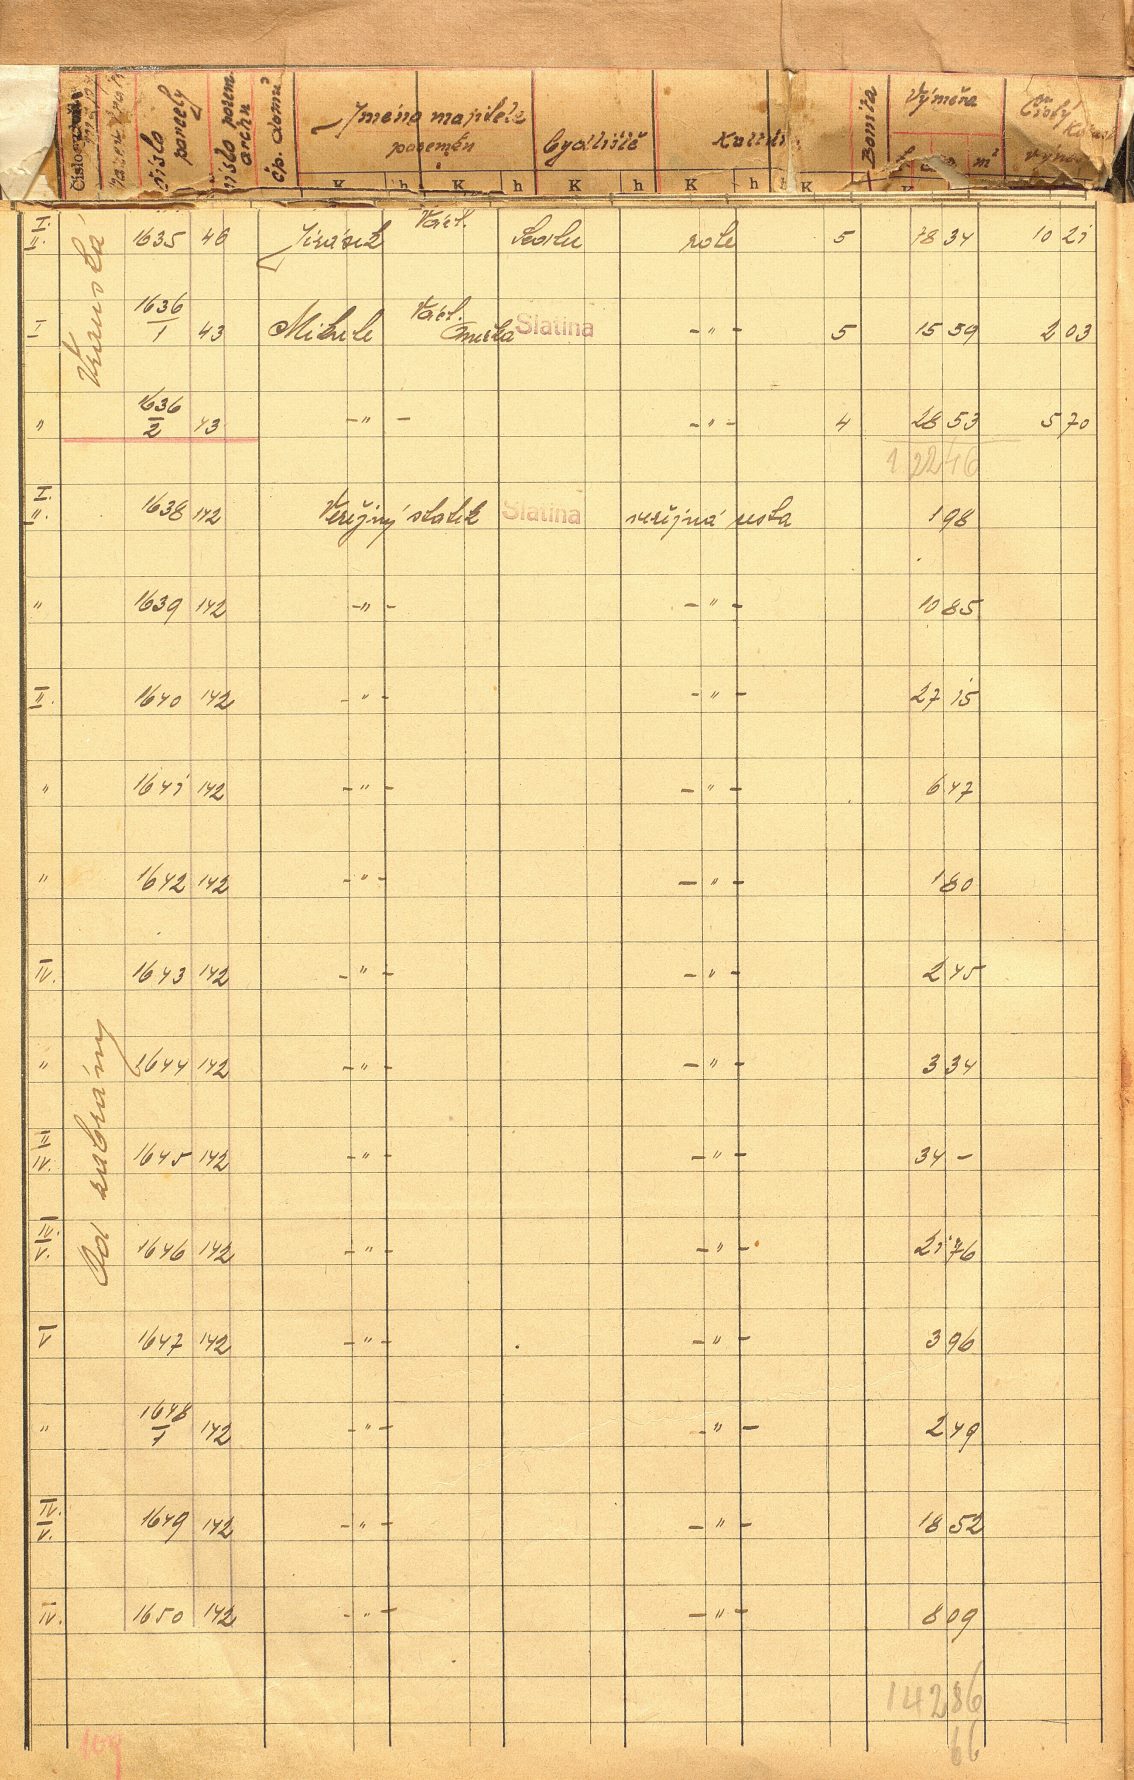 Číslo parcely
čp. domů
Jméno majitele
pozemku
Bydliště
Bonita
Výměra
Čistý
K h K h K h K h K
I. II. 1635 46 Jirásek Václ. role 5 78 34 10 21
I 1636/1 43 Mikule Václ. Anežka Slatina -"- 5 15 59 2 03
" 1636/2 43 -"- -"- 4 28 53 5 70
1 22 46
I. II. 1638 142 Veřejný statek Slatina veřejná cesta 1 98
" 1639 142 -"- -"- 10 85
II. 1640 142 -"- -"- 27 15
" 1641 142 -"- -"- 6 47
" 1642 142 -"- -"- 1 80
IV. 1643 142 -"- -"- 2 45
" 1644 142 -"- -"- 3 34
II IV. 1645 142 -"- -"- 34 -
IV. V. 1646 142 -"- -"- 21 76
V 1647 142 -"- -"- 3 96
" 1648/1 142 -"- -"- 2 49
IV. V. 1649 142 -"- -"- 18 52
IV. 1650 142 -"- -"- 8 09
1 42 86
66
109